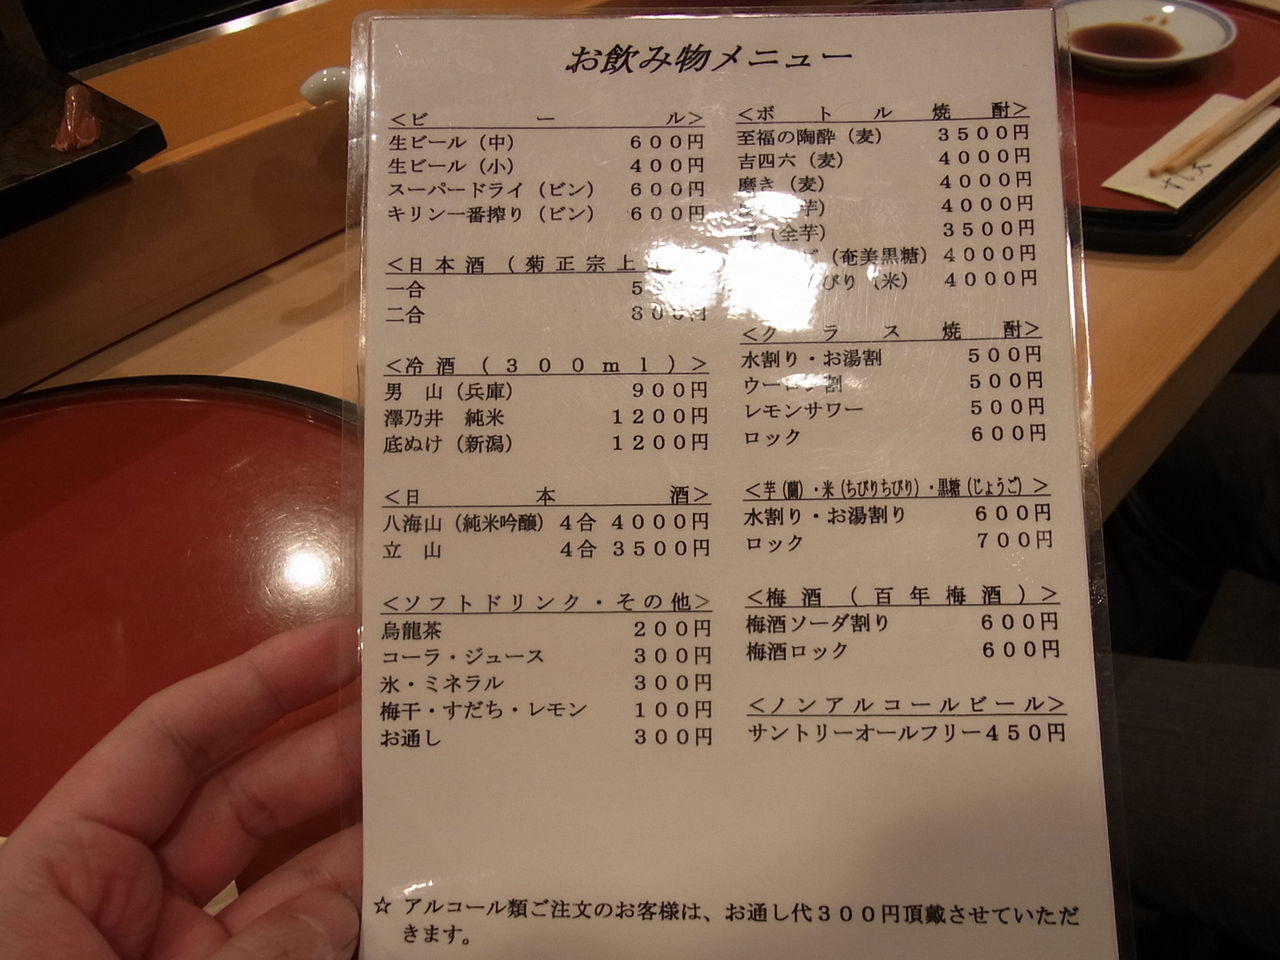 お飲み物メニュー
＜ビール＞
生ビール（中） ６００円
生ビール（小） ４００円
スーパードライ（ビン） ６００円
キリン一番搾り（ビン） ６００円
＜日本酒（菊正宗上
一合 ５
二合 ８００円
＜冷酒（３００ｍｌ）＞
男　山（兵庫） ９００円
澤乃井　純米 １２００円
底ぬけ（新潟） １２００円
＜日本酒＞
八海山（純米吟醸）４合 ４０００円
立　山 ４合 ３５００円
＜ソフトドリンク・その他＞
烏龍茶 ２００円
コーラ・ジュース ３００円
氷・ミネラル ３００円
梅干・すだち・レモン １００円
お通し ３００円
＜ボトル焼酎＞
至福の陶酔（麦） ３５００円
吉四六（麦） ４０００円
磨き（麦） ４０００円
芋） ４０００円
（全芋） ３５００円
（奄美黒糖） ４０００円
びり（米） ４０００円
＜グラス焼酎＞
水割り・お湯割 ５００円
ウーロン割 ５００円
レモンサワー ５００円
ロック ６００円
＜芋（蘭）・米（ちびりちびり）・黒糖（じょうご）＞
水割り・お湯割り ６００円
ロック ７００円
＜梅酒（百年梅酒）＞
梅酒ソーダ割り ６００円
梅酒ロック ６００円
＜ノンアルコールビール＞
サントリーオールフリー４５０円
☆ アルコール類ご注文のお客様は、お通し代３００円頂戴させていただ
きます。